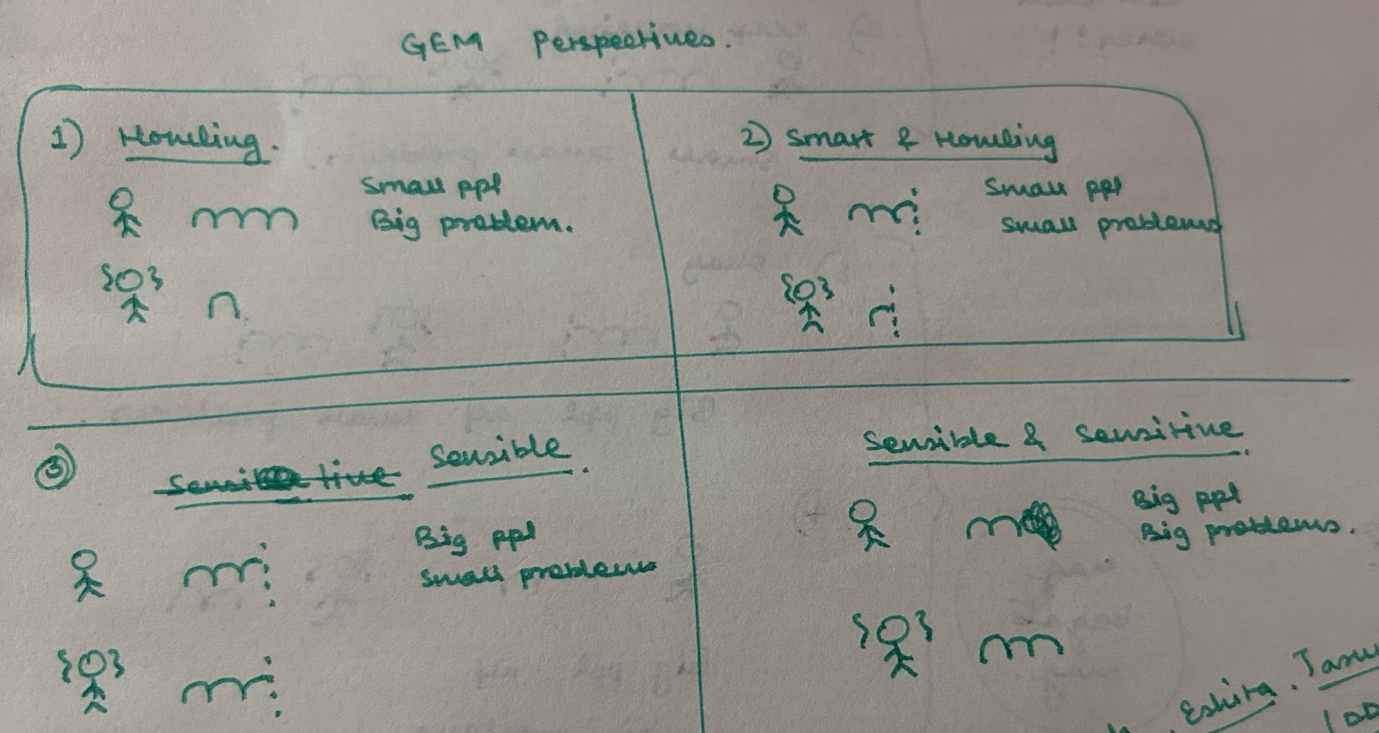 GEM Perspectives.
1) Howling.
Small ppl
Big problem.
2) Smart & Howling
Small ppl
Small problems
3) Sensible.
Big ppl
Small problems
Sensible & Sensitive.
Big ppl
Big problems.
Eshita.